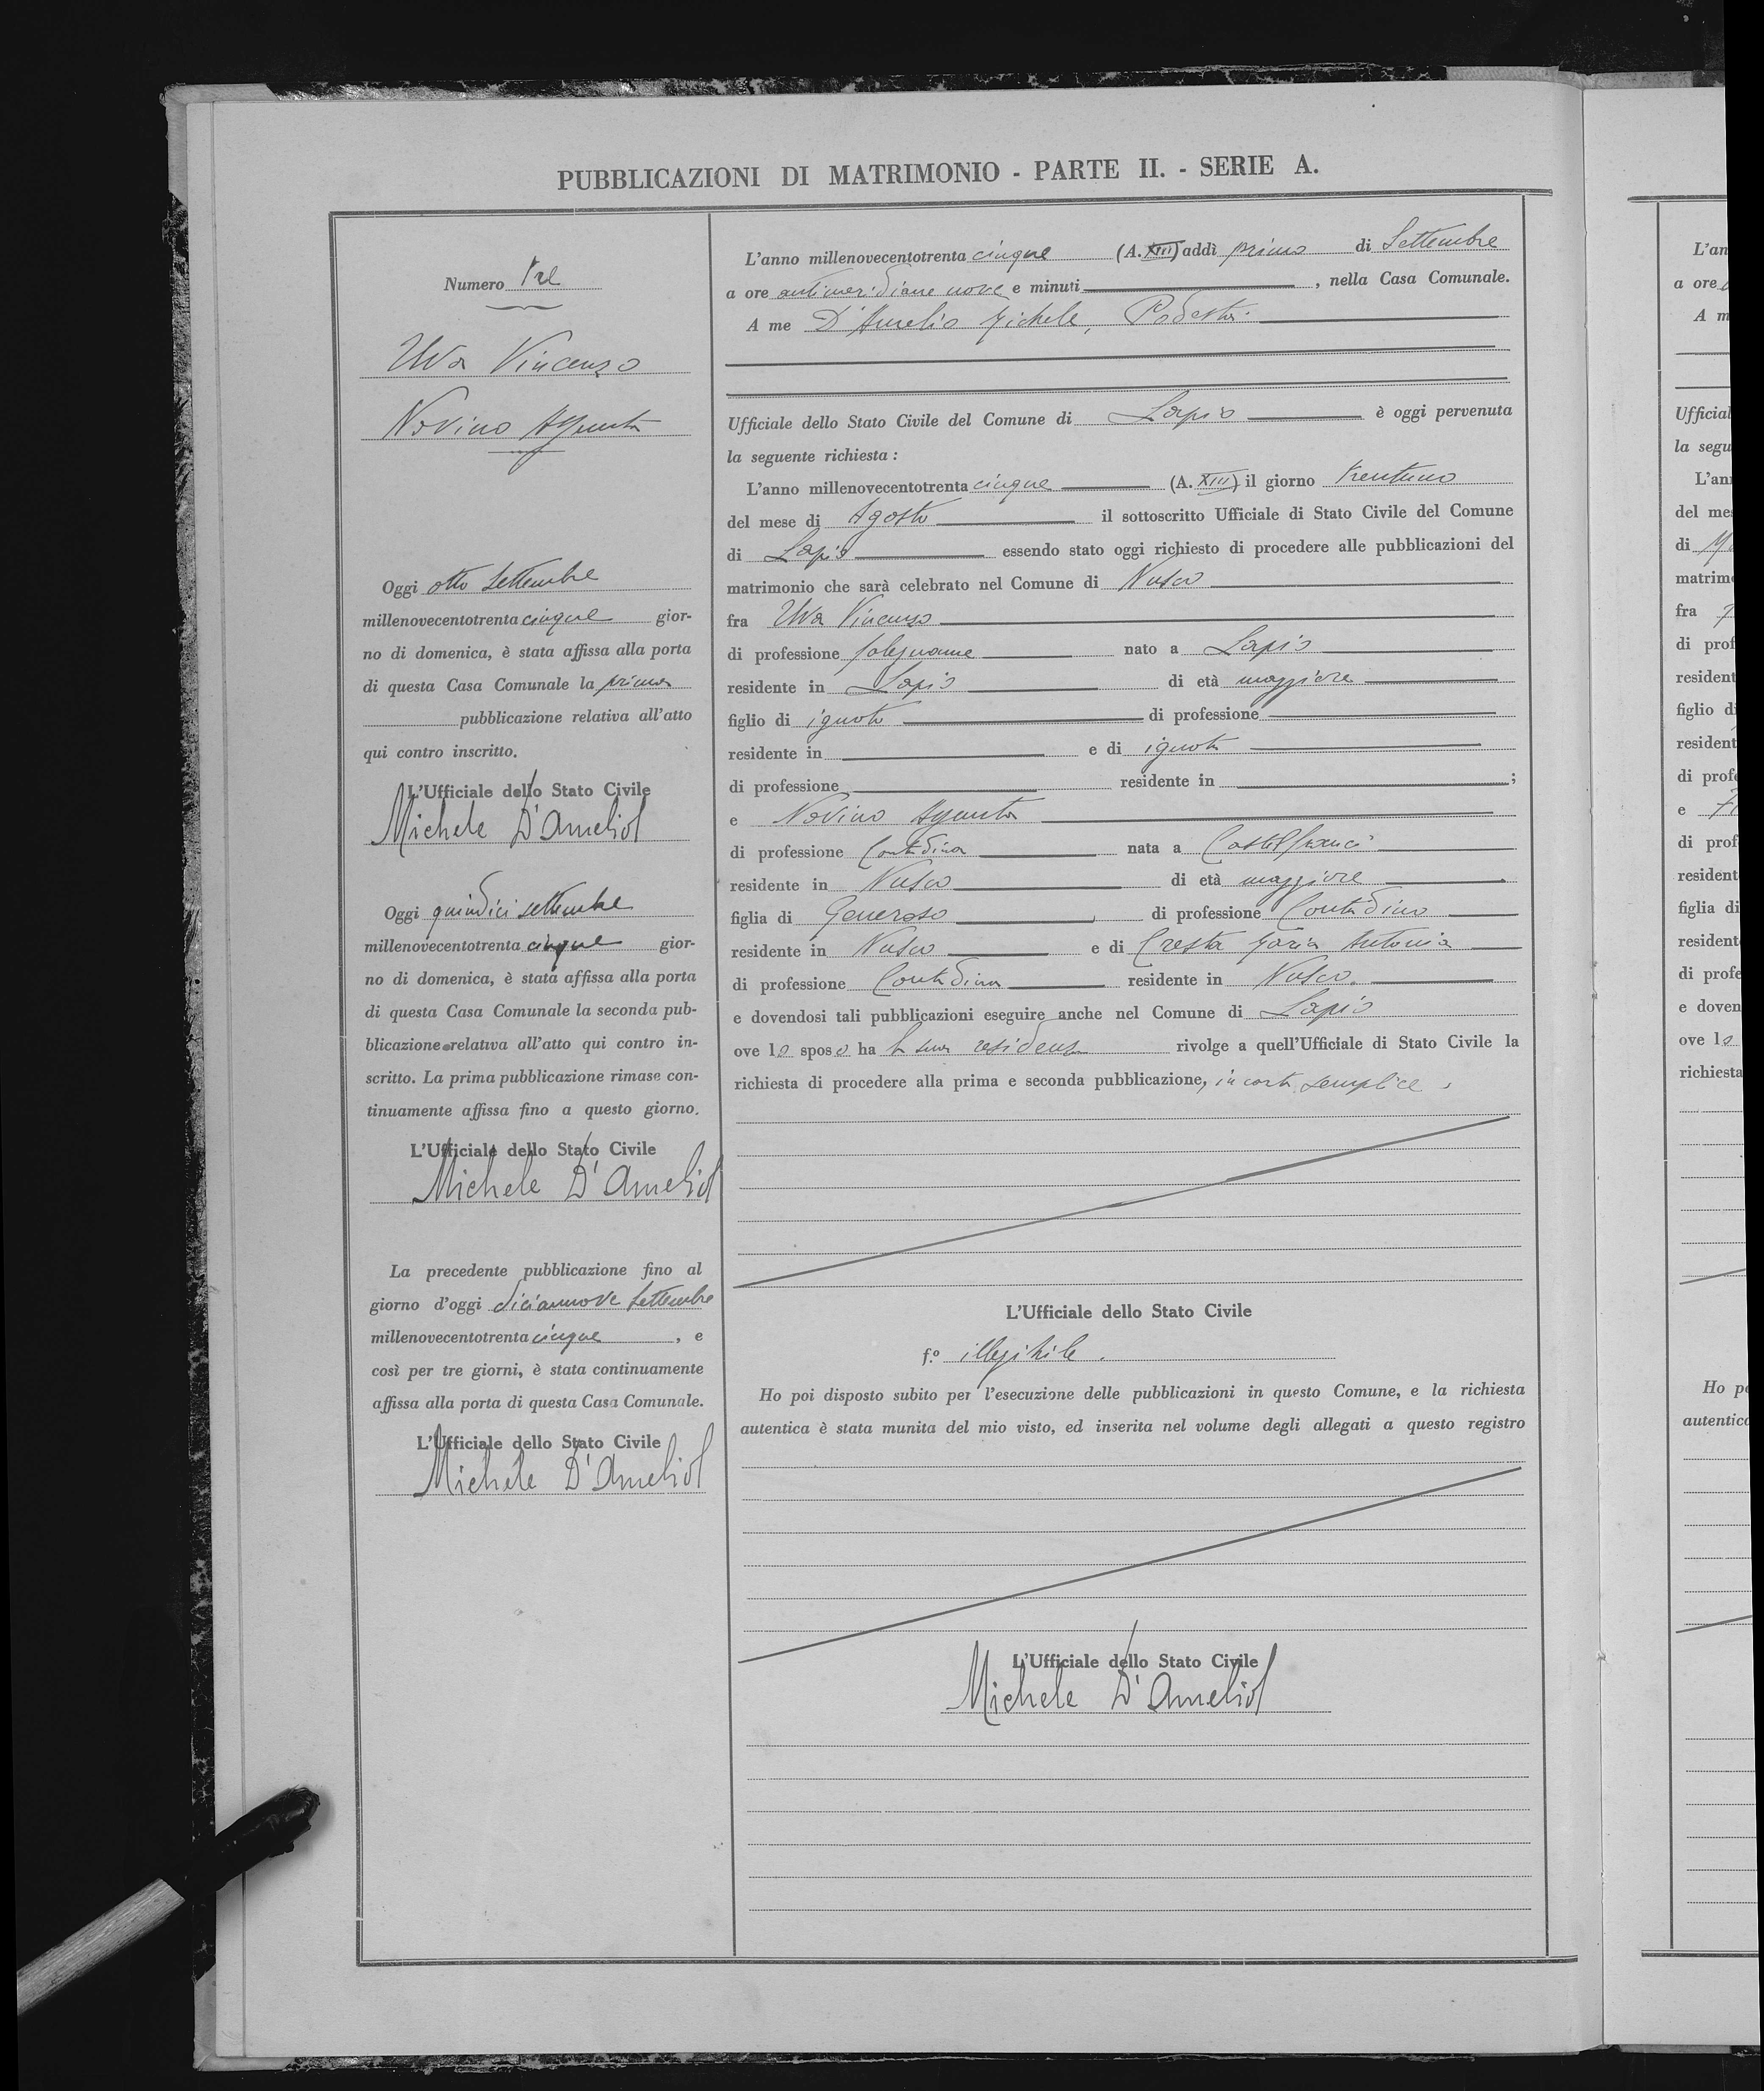 PUBBLICAZIONI DI MATRIMONIO - PARTE II. - SERIE A.
Numero tre
Uva Vincenzo
Novino Agunta
Oggi otto Settembre
millenovecentotrenta cinque gior-
no di domenica, è stata affissa alla porta
di questa Casa Comunale la prima
pubblicazione relativa all'atto
qui contro inscritto.
L'Ufficiale dello Stato Civile
Michele D'Amelio
Oggi quindici settembre
millenovecentotrenta cinque gior-
no di domenica, è stata affissa alla porta
di questa Casa Comunale la seconda pub-
blicazione relativa all'atto qui contro in-
scritto. La prima pubblicazione rimase con-
tinuamente affissa fino a questo giorno.
L'Ufficiale dello Stato Civile
Michele D'Amelio
La precedente pubblicazione fino al
giorno d'oggi diciannove Settembre
millenovecentotrenta cinque, e
così per tre giorni, è stata continuamente
affissa alla porta di questa Casa Comunale.
L'Ufficiale dello Stato Civile
Michele D'Amelio
L'anno millenovecentotrenta cinque (A. XIII) addì primo di Settembre
a ore antimeridiane nove e minuti , nella Casa Comunale.
A me D'Amelio Michele, Podestà.
Ufficiale dello Stato Civile del Comune di Lapio è oggi pervenuta
la seguente richiesta :
L'anno millenovecentotrenta cinque (A. XIII) il giorno trentuno
del mese di Agosto il sottoscritto Ufficiale di Stato Civile del Comune
di Lapio essendo stato oggi richiesto di procedere alle pubblicazioni del
matrimonio che sarà celebrato nel Comune di Nusco
fra Uva Vincenzo
di professione falegname nato a Lapio
residente in Lapio di età maggiore
figlio di ignoto di professione
residente in e di ignota
di professione residente in ;
e Novino
di professione Contadina nata a Castelfranci
residente in Nusco di età maggiore
figlia di Generoso di professione Contadino
residente in Nusco e di Cresta Maria Antonia
di professione Contadina residente in Nusco.
e dovendosi tali pubblicazioni eseguire anche nel Comune di Lapio
ove lo sposo ha la sua residenza rivolge a quell'Ufficiale di Stato Civile la
richiesta di procedere alla prima e seconda pubblicazione, in carta semplice.
L'Ufficiale dello Stato Civile
f.º illegibile.
Ho poi disposto subito per l'esecuzione delle pubblicazioni in questo Comune, e la richiesta
autentica è stata munita del mio visto, ed inserita nel volume degli allegati a questo registro
L'Ufficiale dello Stato Civile
Michele D'Amelio
L'an
a ore
A m
Ufficial
la segu
L'an
del me
di
matrim
fra
di prof
resident
figlio di
resident
di prof
e
di prof
resident
figlia di
resident
di profe
e doven
ove lo
richiesta
Ho po
autentica